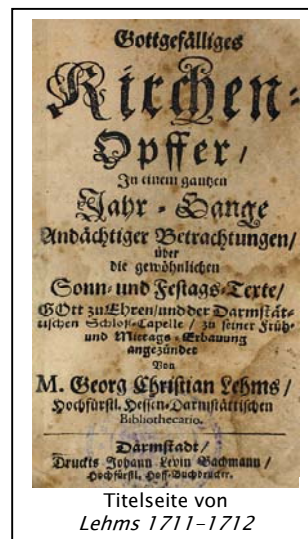 Gottgefälliges
Kirchen-
Opffer /
In einem gantzen
Jahr-Gange
Andächtiger Betrachtungen /
über
die gewöhnlichen
Sonn- und Festags-Texte /
GOtt zu Ehren / und der Darmstät-
tischen Schloß-Capelle / zu seiner Früh-
und Mittags-Erbauung
angezündet
Von
M. Georg Christian Lehms /
Hochfürstl. Hessen-Darmstättischen
Bibliothecario.
Darmstadt /
Druckts Johann Levin Bachmann /
Hochfürstl. Hoff-Buchdrucker.
Titelseite von
Lehms 1711-1712